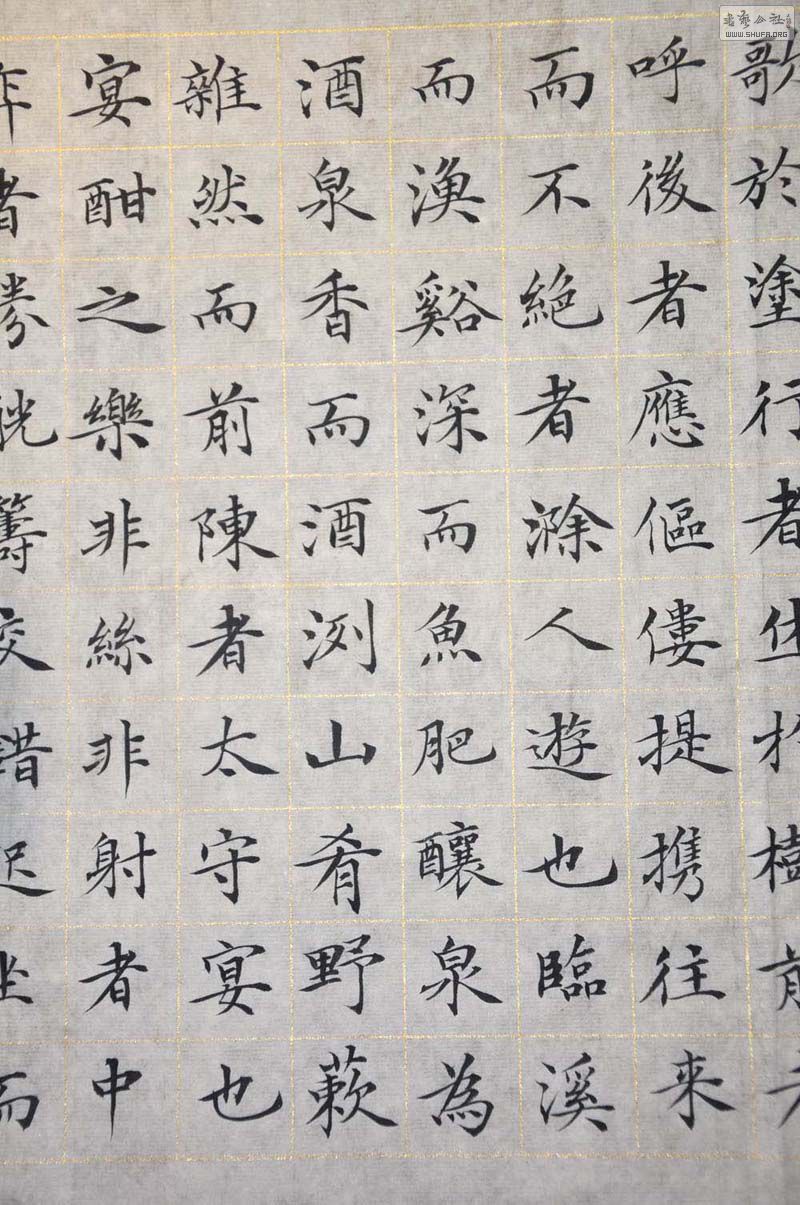 歌於塗行者休於樹前者
呼後者應傴僂提携往来
而不絶者滁人遊也臨溪
而漁谿深而魚肥釀泉為
酒泉香而酒洌山肴野蔌
雜然而前陳者太守宴也
宴酣之樂非絲非射者中
者勝觥籌交錯起坐而
書藝公社
WWW.SHUFA.ORG